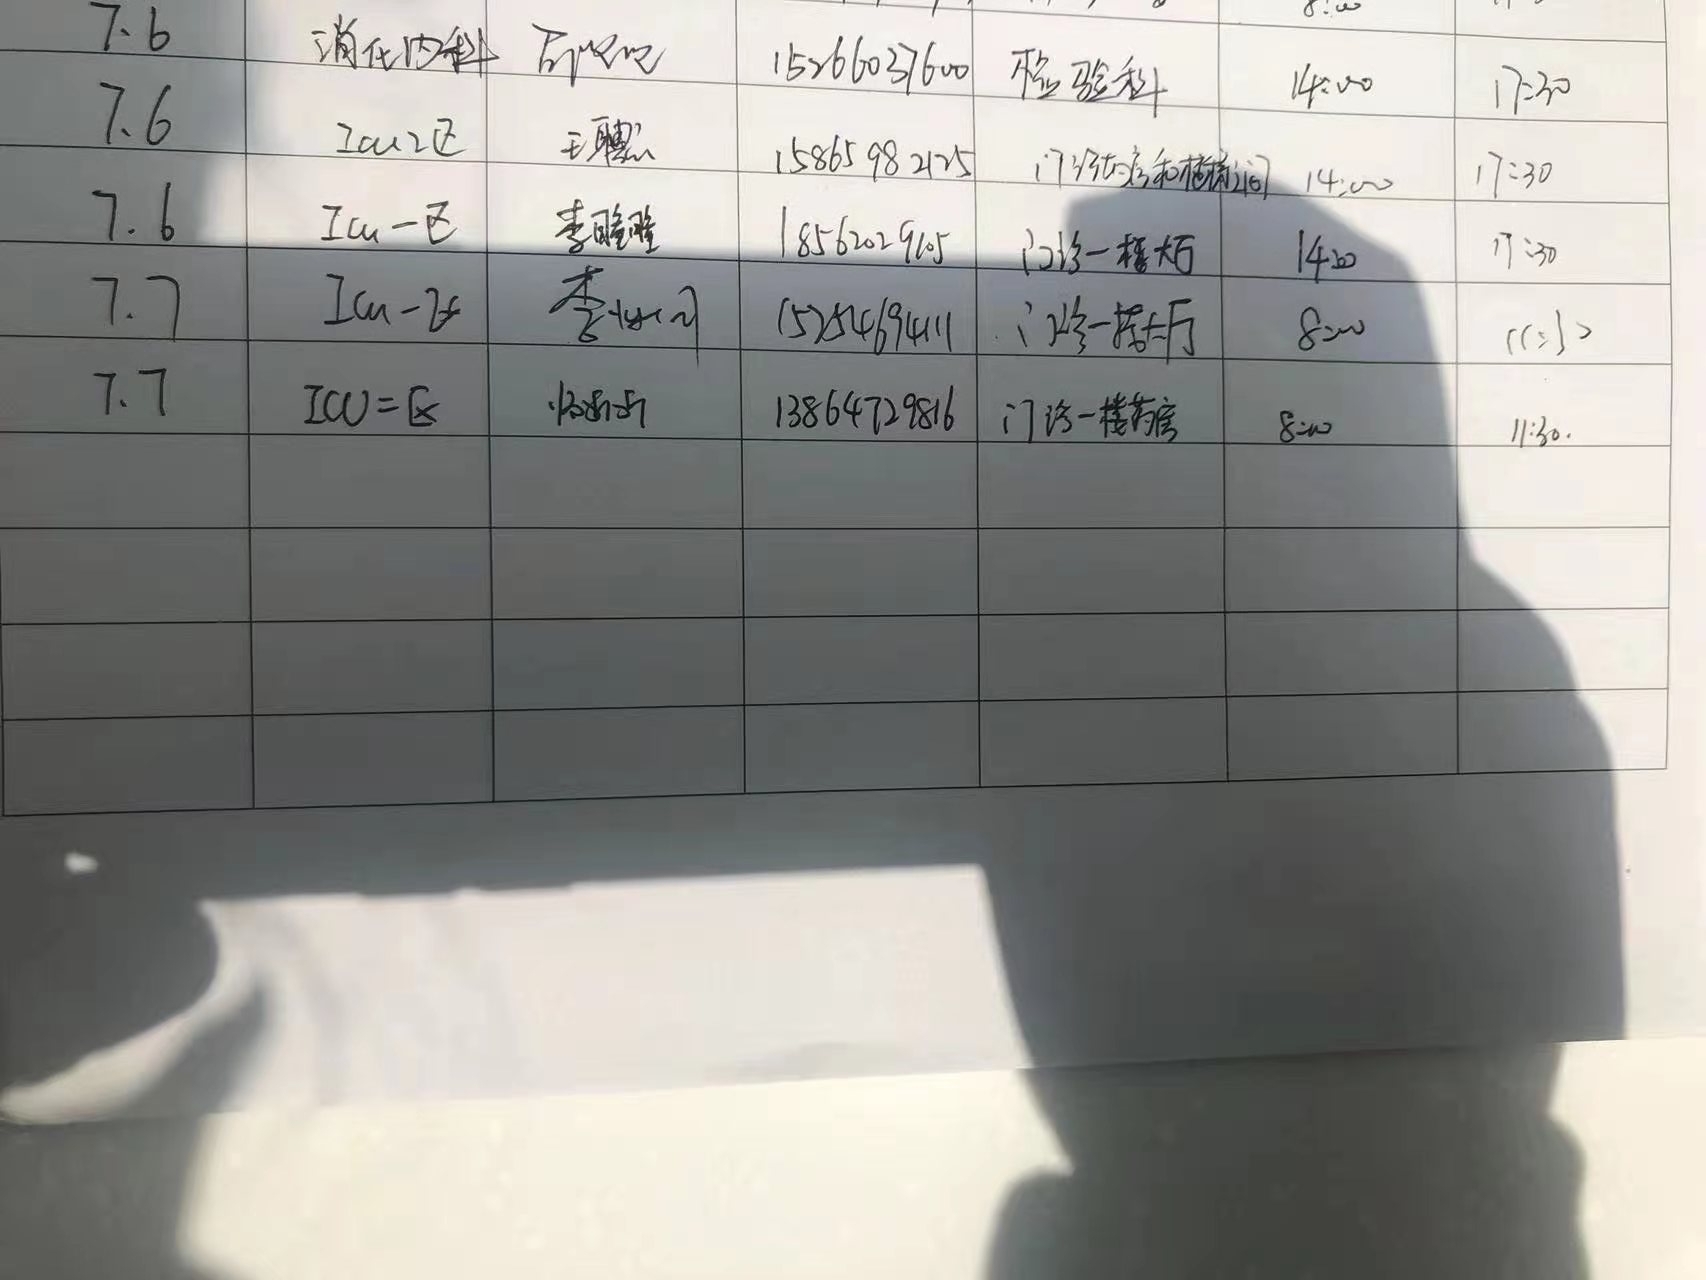 8:00
7.6 消化内科 15266037600 检验科 14:00 17:30
7.6 Icu2区 王聰 15865982125 门诊 14:00 17:30
7.6 Icu一区 李瞳瞳 18562029105 门诊一楼大厅 14:00 17:30
7.7 Icu一区 李 15254694111 门诊一楼大厅 8:00 11:30
7.7 ICU二区 13864729816 门诊一楼药房 8:00 11:30.